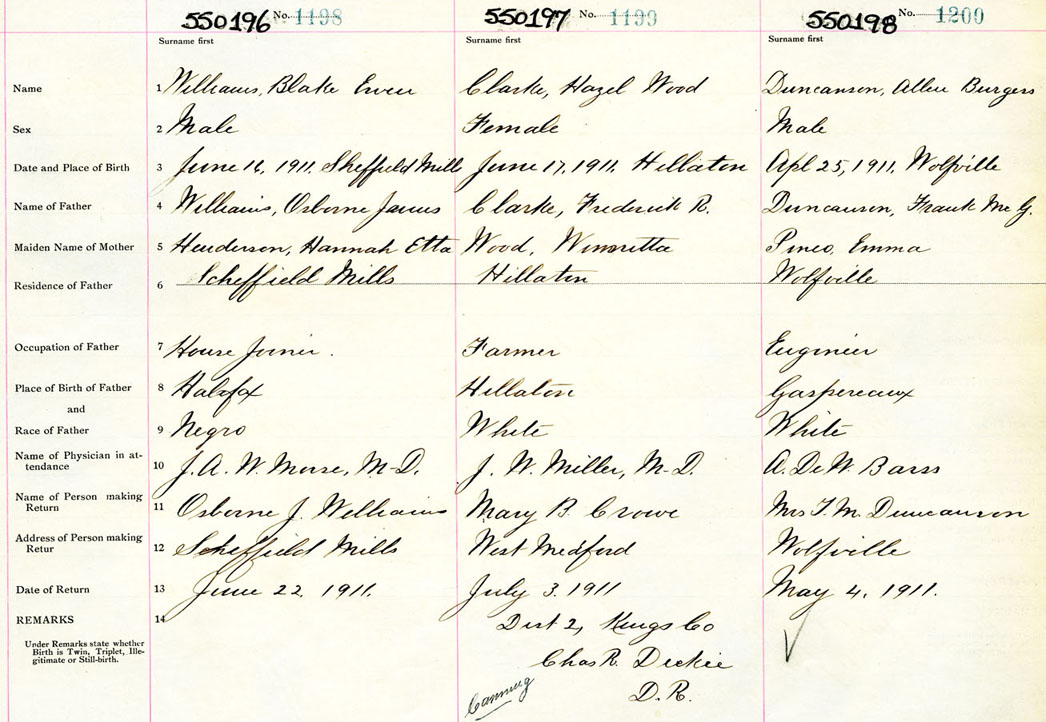 550196 No. 1198 550197 No. 1199 550198 No. 1200
Surname first Surname first Surname first
Name 1 Williams, Blake Ewen Clarke, Hazel Wood Duncanson, Allen Burgess
Sex 2 Male Female Male
Date and Place of Birth 3 June 16, 1911, Sheffield Mills June 17, 1911, Hillaton Apl 25, 1911, Wolfville
Name of Father 4 Williams, Osborne James Clarke, Frederick R. Duncanson, Frank Mc G.
Maiden Name of Mother 5 Henderson, Hannah Etta Wood, Pineo, Emma
Residence of Father 6 Scheffield Mills Hillaton Wolfville
Occupation of Father 7 House Joiner. Farmer Engineer
Place of Birth of Father 8 Halifax Hillaton Gaspereaux
and
Race of Father 9 Negro White White
Name of Physician in at-
tendance 10 J. A. W. Morse, M-D. J. W. Miller, M-D. A. De W. Barss
Name of Person making
Return 11 Osborne J. Williams Mary B. Crowe Mrs F. M. Duncanson
Address of Person making
Retur 12 Scheffield Mills West Medford Wolfville
Date of Return 13 June 22, 1911. July 3, 1911 May 4, 1911.
REMARKS 14 Dist 2, Kings Co
Under Remarks state whether
Birth is Twin, Triplet, Ille-
gitimate or Still-birth.
Chas R. Dickie
D. R.
Canning